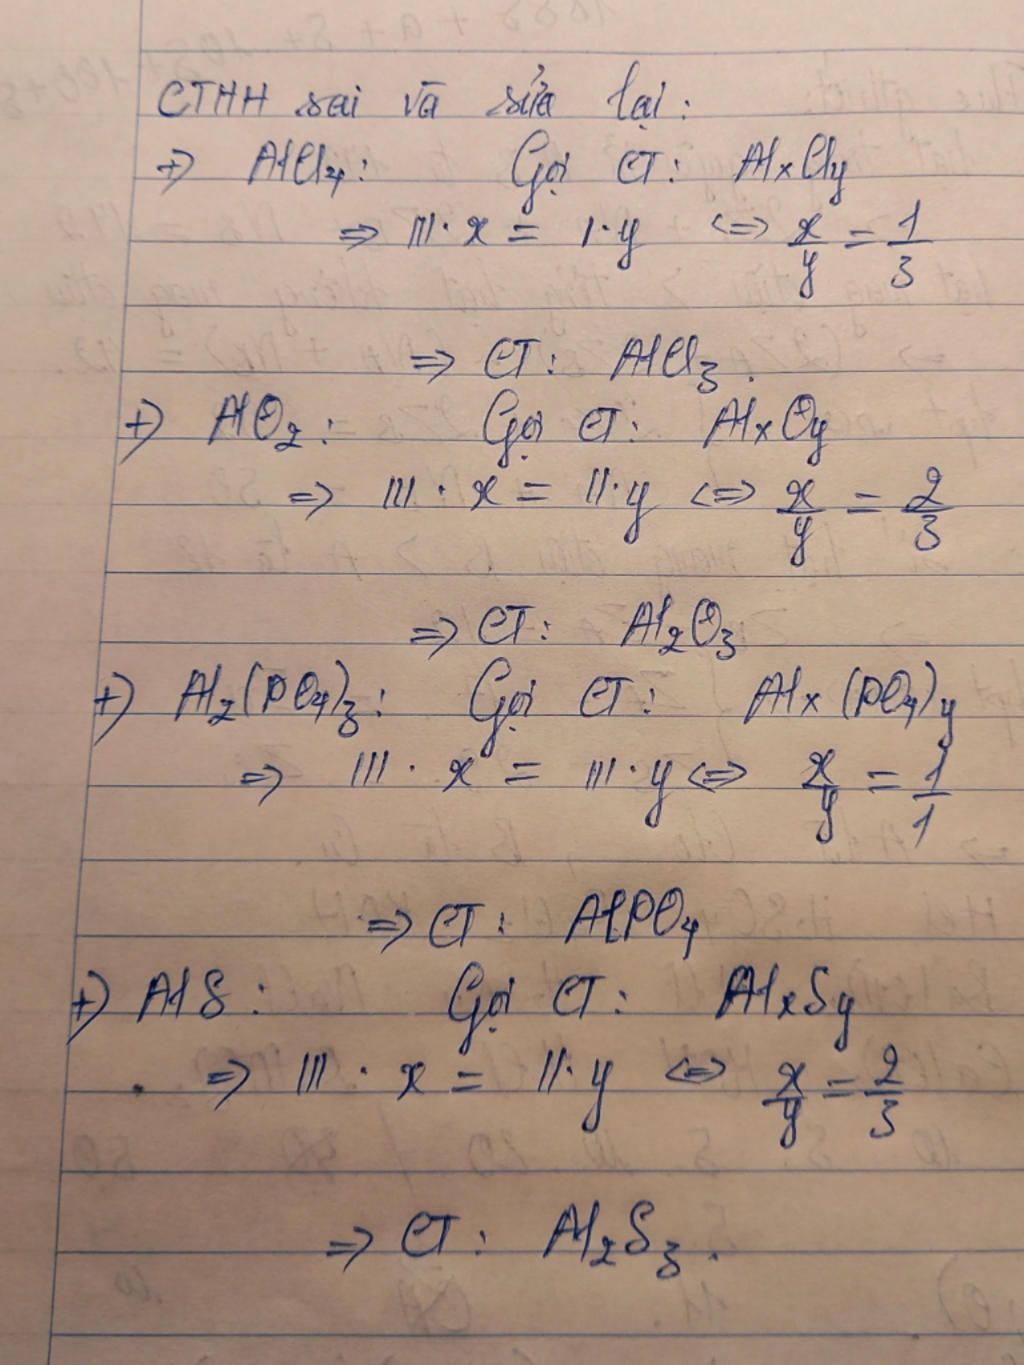 CTHH sai và sửa lại:
+) AlCl₄: Gọi CT: AlxCly
=> III.x = I.y <=> x/y = 1/3
=> CT: AlCl₃.
+) AlO₂: Gọi CT: AlxOy
=> III.x = II.y <=> x/y = 2/3
=> CT: Al₂O₃
+) Al₂(PO₄)₃: Gọi CT: Alx(PO₄)y
=> III.x = III.y <=> x/y = 1/1
=> CT: AlPO₄
+) AlS: Gọi CT: AlxSy
=> III.x = II.y <=> x/y = 2/3
=> CT: Al₂S₃.